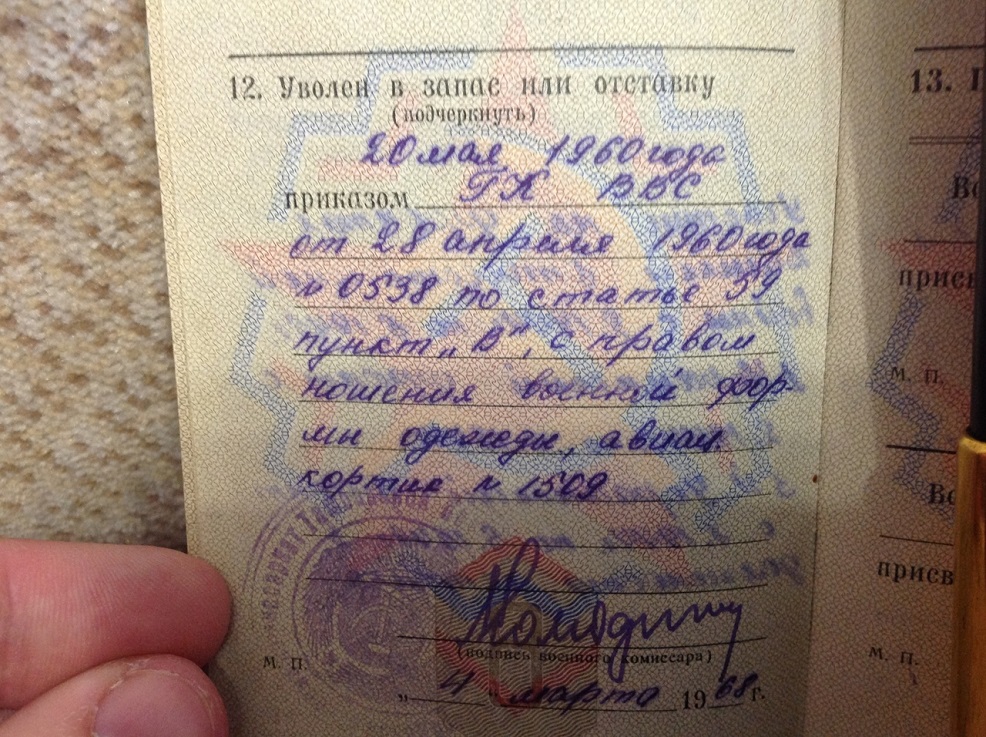 12. Уволен в запас или отставку
(подчеркнуть)
20 мая 1960 года
приказом ГК ВВС
от 28 апреля 1960 года
№ 0538 по статье 59
пункт „В“, с правом
ношения военной фор-
мы одежды, авиац.
кортик № 1509
(подпись военного комиссара)
м. п.
„4“ марта 1968 г.
13.
прис
м. п.
присв
м. п.